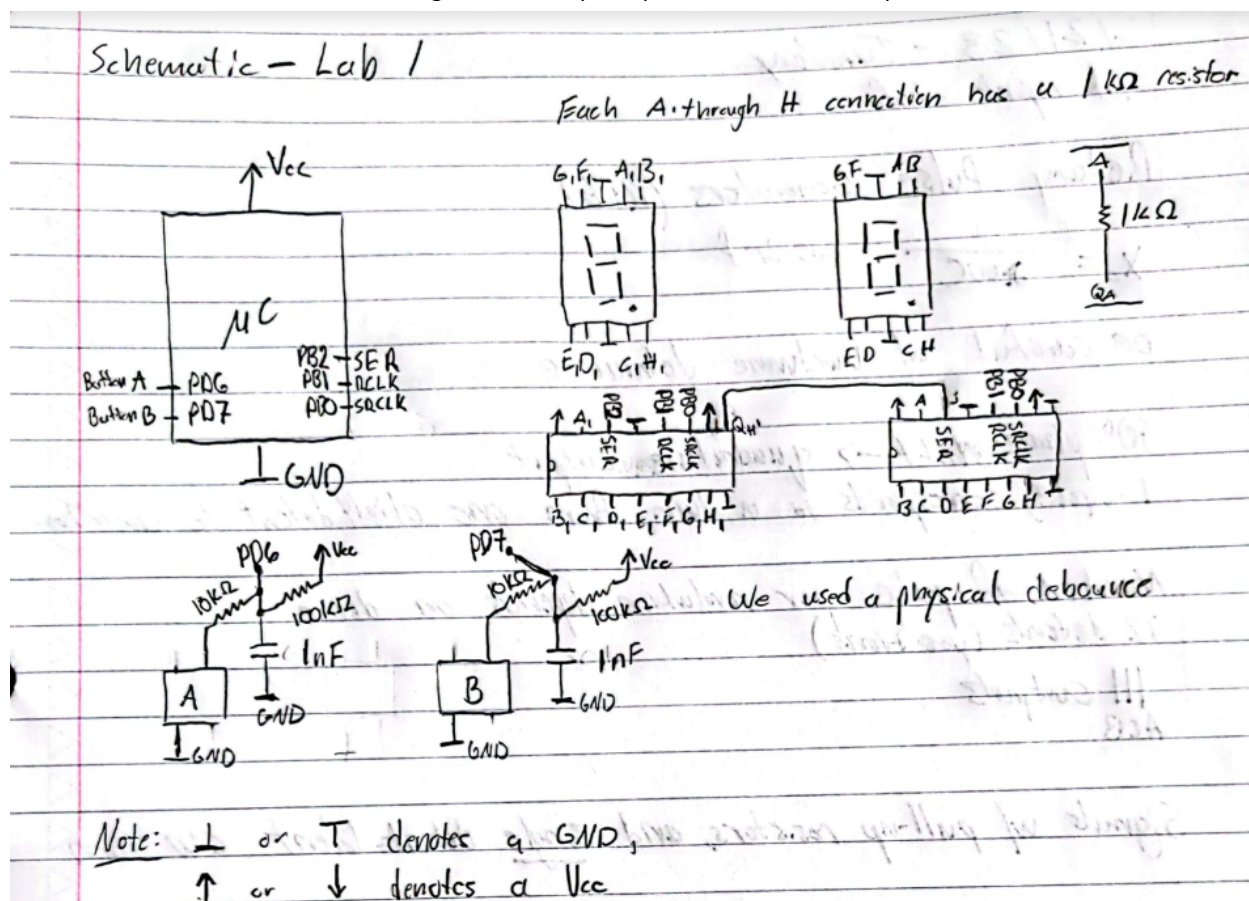 Schematic - Lab 1
Each A through H connection has a 1 kΩ resistor
Vcc
μC
Button A PD6
Button B PD7
PB2 SER
PB1 RCLK
PB0 SRCLK
GND
G₁F₁ A₁B₁
E₁D₁ C₁H₁
GF AB
ED CH
A
1kΩ
QA
A₁ PB1 PB0 QH'
SER RCLK SRCLK
B₁ C₁ D₁ E₁ F₁ G₁ H₁
A PB1 PB0
SER RCLK SRCLK
B C D E F G H
PD6 Vcc
10kΩ 100kΩ
1nF
A GND
GND
PD7 Vcc
10kΩ 100kΩ
1nF
B GND
GND
We used a physical debounce
Note: ⊥ or T denotes a GND,
↑ or ↓ denotes a Vcc